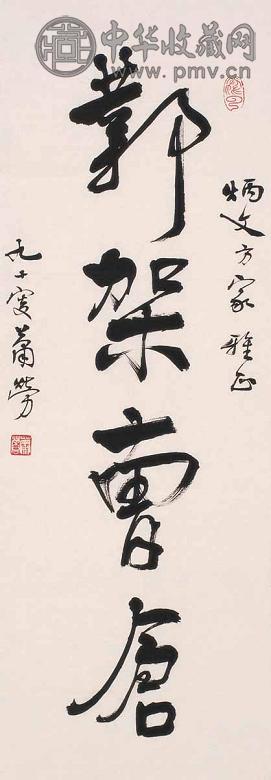 中华收藏网
www.pmv.cn
炳文方家雅正
鄴架曹倉
九十叟蕭勞